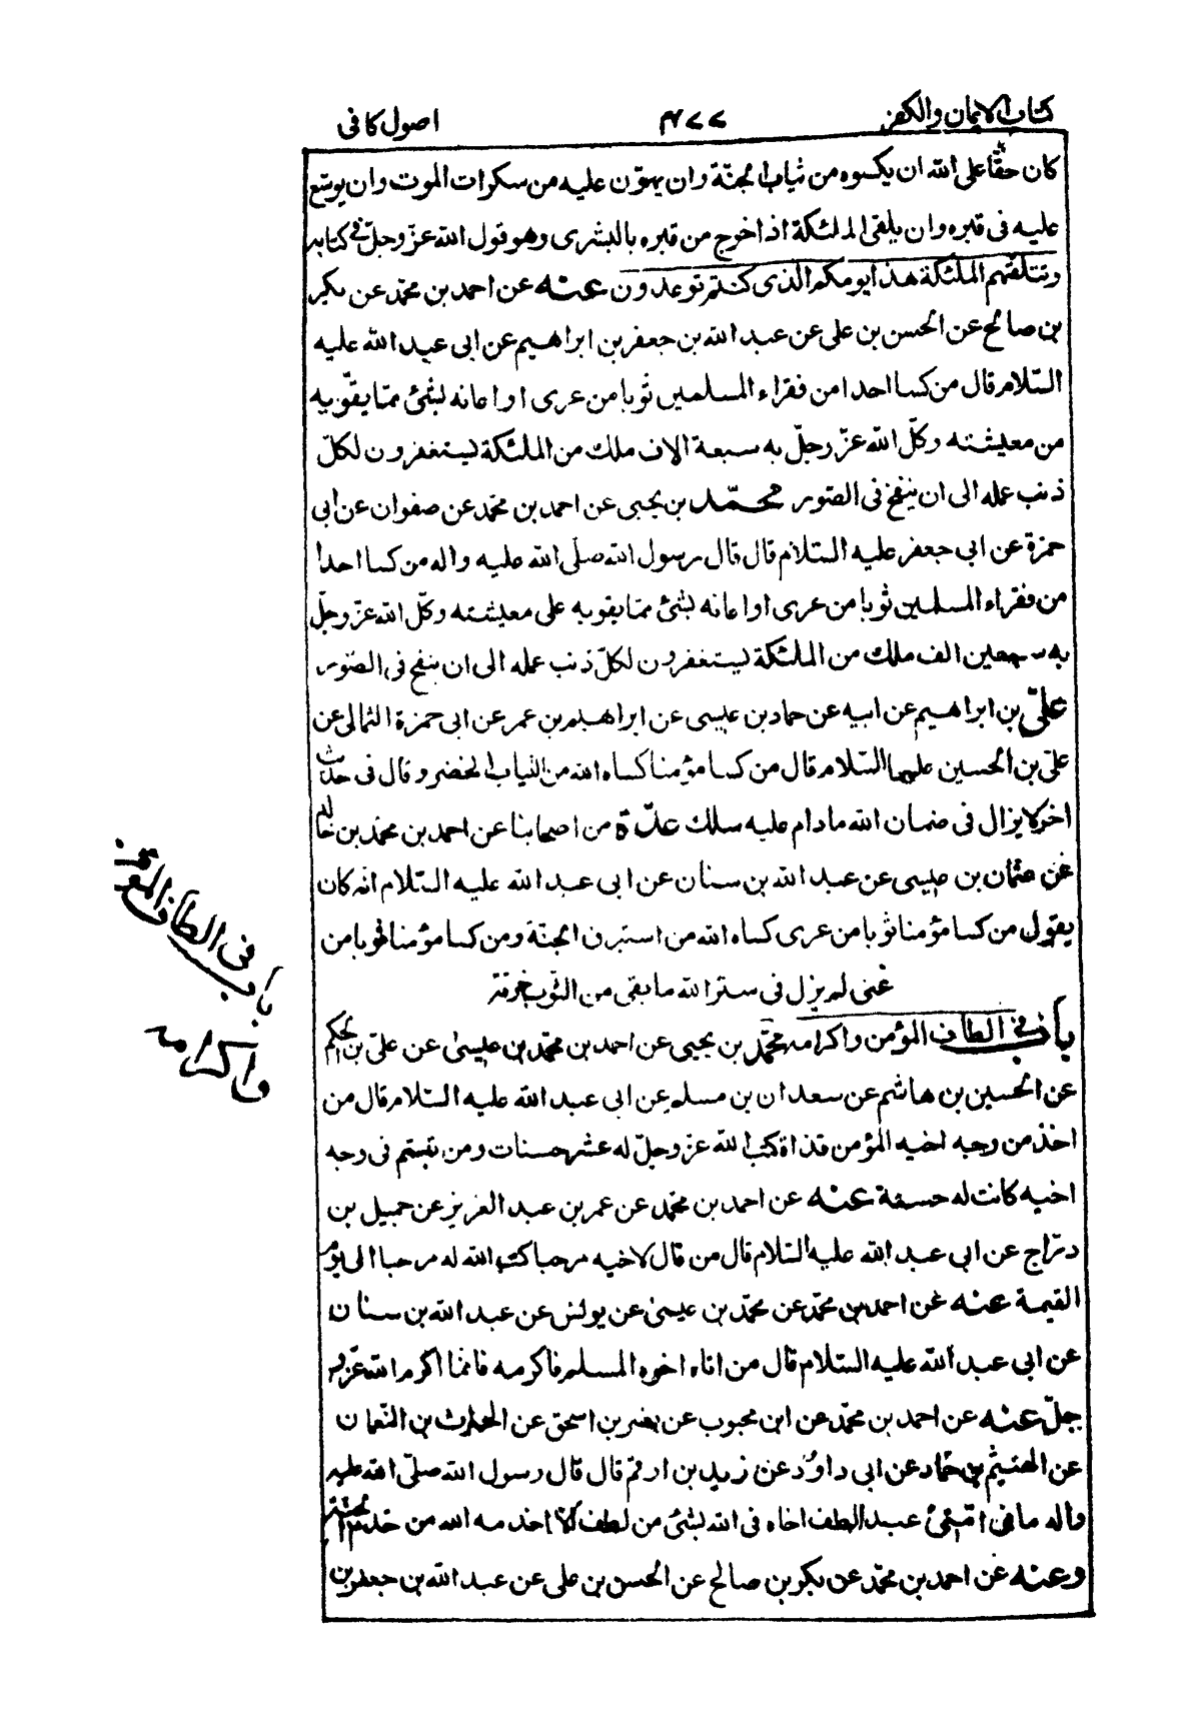 كتاب الايمان والكفر
٤٧٧
اصول كافى
كان حقّا على الله ان يكسوه من ثياب الجنّة وان يهوّن عليه من سكرات الموت وان يوسّع
عليه فى قبره وان يلقى الملئكة اذا خرج من قبره بالبشرى وهو قول الله عزّ وجلّ فى كتابه
وتتلقّهم الملئكة هذا يومكم الذى كنتم توعدون عنه عن احمد بن محمّد عن بكر
بن صالح عن الحسن بن على عن عبد الله بن جعفر بن ابراهيم عن ابى عبد الله عليه
السّلام قال من كسا احدا من فقراء المسلمين ثوبا من عرى او اعانه بشئ ممّا يقوّيه
من معيشته وكّل الله عزّ وجلّ به سبعة الاف ملك من الملئكة يستغفرون لكلّ
ذنب عمله الى ان ينفخ فى الصّور محمّد بن يحيى عن احمد بن محمّد عن صفوان عن ابى
حمزة عن ابى جعفر عليه السّلام قال قال رسول الله صلّى الله عليه واله من كسا احدا
من فقراء المسلمين ثوبا من عرى او اعانه بشئ ممّا يقويه على معيشته وكّل الله عزّ وجلّ
به سبعين الف ملك من الملئكة يستغفرون لكلّ ذنب عمله الى ان ينفخ فى الصّور
علىّ بن ابراهيم عن ابيه عن حماد بن عيسى عن ابراهيم بن عمر عن ابى حمزة الثمالى عن
علىّ بن الحسين عليهما السّلام قال من كسا مؤمنا كساه الله من الثياب الخضر وقال فى حديث
اخر لا يزال فى ضمان الله ما دام عليه سلك عدّة من اصحابنا عن احمد بن محمّد بن خالد
عن عثمان بن عيسى عن عبد الله بن سنان عن ابى عبد الله عليه السّلام انّه كان
يقول من كسا مؤمنا ثوبا من عرى كساه الله من استبرق الجنّة ومن كسا مؤمنا ثوبا من
غنى لم يزل فى ستر الله ما بقى من الثّوب خرقة
باب فى الطاف المؤمن واكرامه محمّد بن يحيى عن احمد بن محمّد بن عيسى عن علىّ بن الحكم
عن الحسين بن هاشم عن سعدان بن مسلم عن ابى عبد الله عليه السّلام قال من
اخذ من وجه اخيه المؤمن قذاة كتب الله عزّ وجلّ له عشر حسنات ومن تبسّم فى وجه
اخيه كانت له حسنة عنه عن احمد بن محمّد عن عمر بن عبد العزيز عن جميل بن
درّاج عن ابى عبد الله عليه السّلام قال من قال لاخيه مرحبا كتب الله له مرحبا الى يوم
القيمة عنه عن احمد بن محمّد عن محمّد بن عيسى عن يونس عن عبد الله بن سنان
عن ابى عبد الله عليه السّلام قال من اتاه اخوه المسلم فاكرمه فانّما اكرم الله عزّ و
جلّ عنه عن احمد بن محمّد عن ابن محبوب عن نصر بن اسحق عن الحارث بن النّعمان
عن الهيثم بن حمّاد عن ابى داوُد عن زيد بن ارقم قال قال رسول الله صلّى الله عليه
واله ما فى امّتى عبد الطف اخاه فى الله بشئ من لطف الّا اخدمه الله من خدم الجنّة
وعنه عن احمد بن محمّد عن بكر بن صالح عن الحسن بن على عن عبد الله بن جعفر بن
باب فى الطاف المؤمن
واكرامه